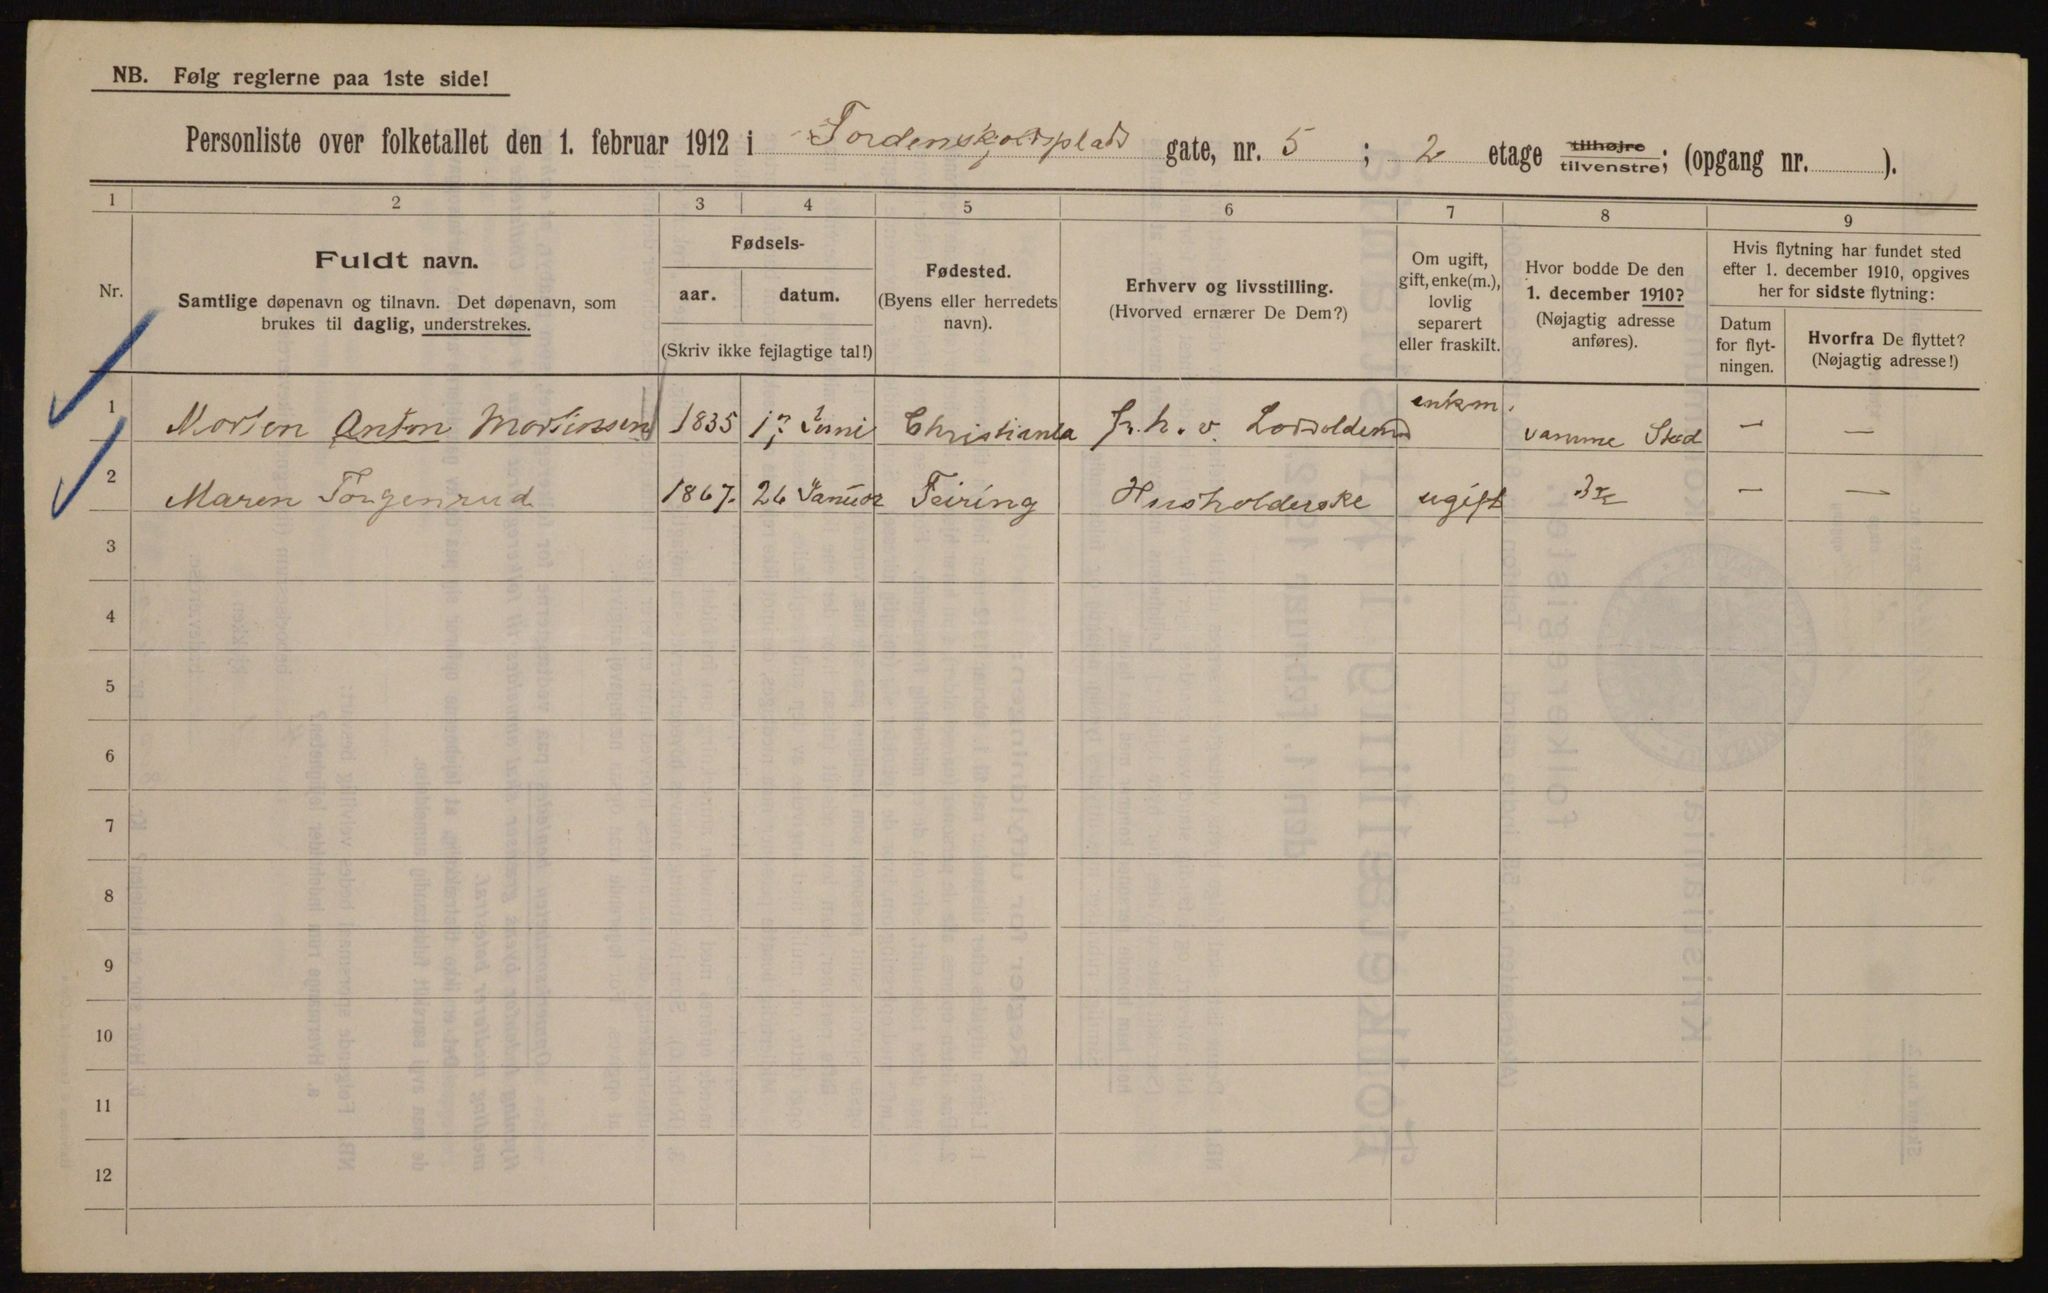 NB. Følg reglerne paa 1ste side!
Personliste over folketallet den 1. februar 1912 i Tordenskjoldsplads gate, nr. 5 ; 2 etage tilhøjre tilvenstre; (opgang nr. ).
1 2 3 4 5 6 7 8 9
Nr.
Fuldt navn.
Samtlige døpenavn og tilnavn. Det døpenavn, som
brukes til daglig, understrekes.
Fødsels-
aar. datum.
(Skriv ikke fejlagtige tal!)
Fødested.
(Byens eller herredets
navn).
Erhverv og livsstilling.
(Hvorved ernærer De Dem?)
Om ugift,
gift, enke(m.),
lovlig
separert
eller fraskilt.
Hvor bodde De den
1. december 1910?
(Nøjagtig adresse
anføres).
Hvis flytning har fundet sted
efter 1. december 1910, opgives
her for sidste flytning:
Datum
for flyt-
ningen.
Hvorfra De flyttet?
(Nøjagtig adresse!)
1 Morten Anton Mortensen 1835 17 Juni Christiania enkm. samme Sted — —
2 Maren Torgenrud 1867. 26 Januar Feiring Husholderske ugift — —
3
4
5
6
7
8
9
10
11
12